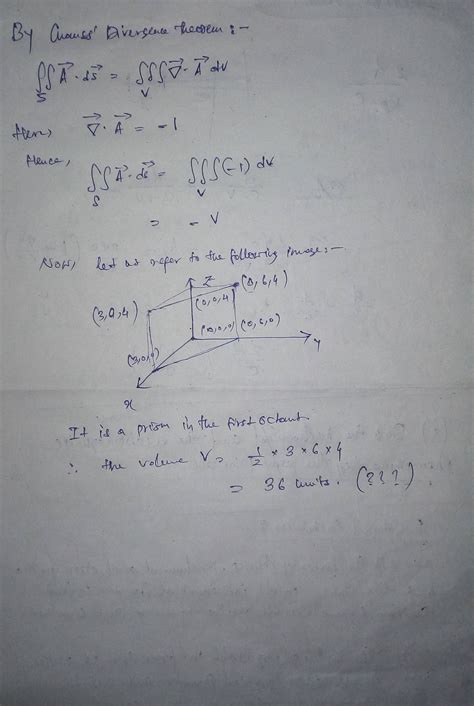 By Gauss' Divergence Theorem :-
∬_S A⃗ · ds⃗ = ∭_V ∇⃗ · A⃗ dV
Here, ∇⃗ · A⃗ = -1
Hence,
∬_S A⃗ · ds⃗ = ∭_V (-1) dV
= - V
Now, let us refer to the following image :-
Z (0, 6, 4)
(3, 0, 4) (0, 0, 4)
(0, 0, 0) (0, 6, 0)
y
(3, 0, 0)
x
It is a prism in the first octant
∴ the volume V = 1/2 × 3 × 6 × 4
= 36 units. (???)